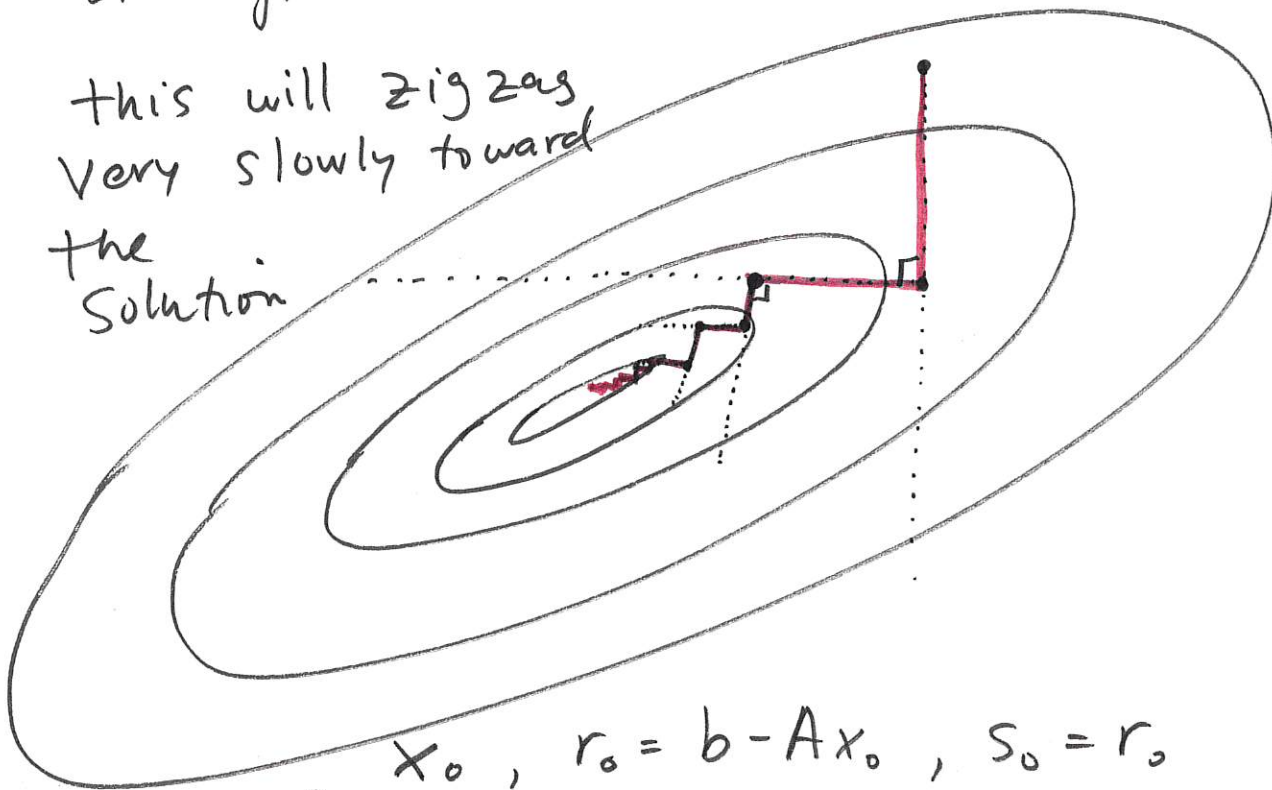 this will zigzag
very slowly toward
the
solution
x₀, r₀ = b - Ax₀, s₀ = r₀